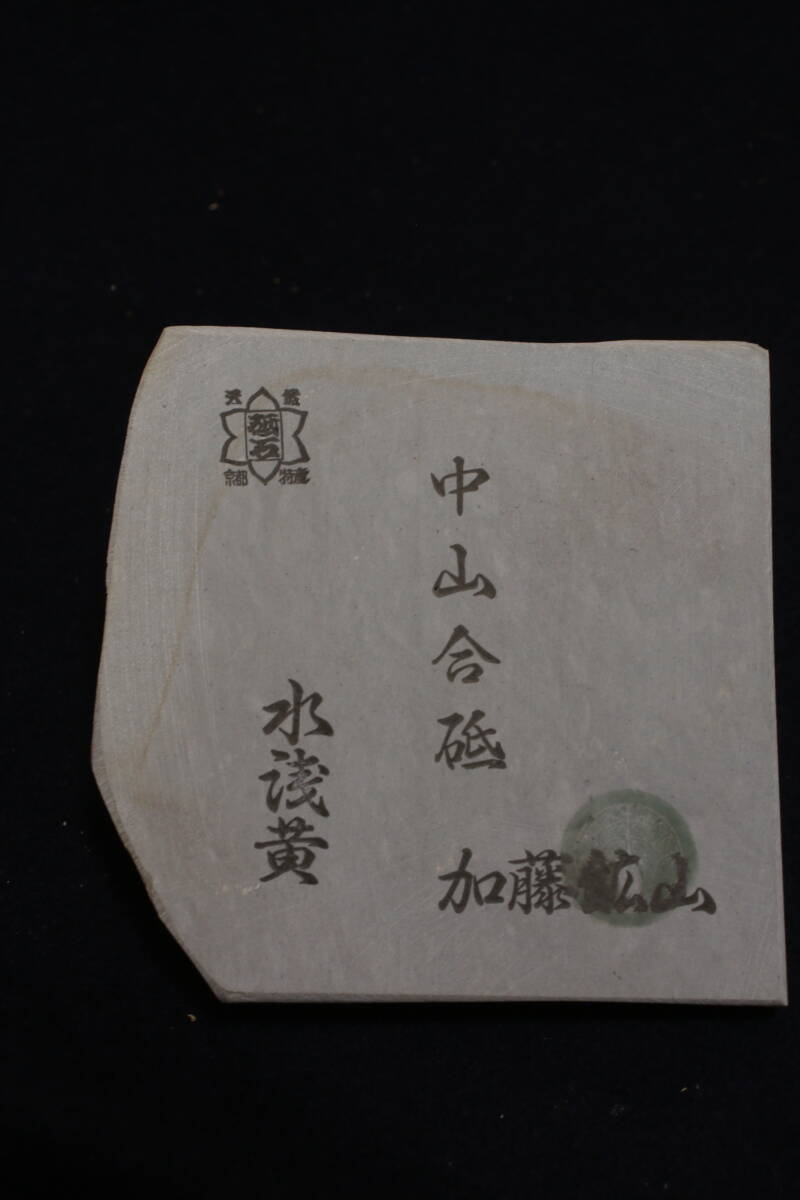 天然
砥石
京都特産
中山合砥
水浅黄
加藤鉱山